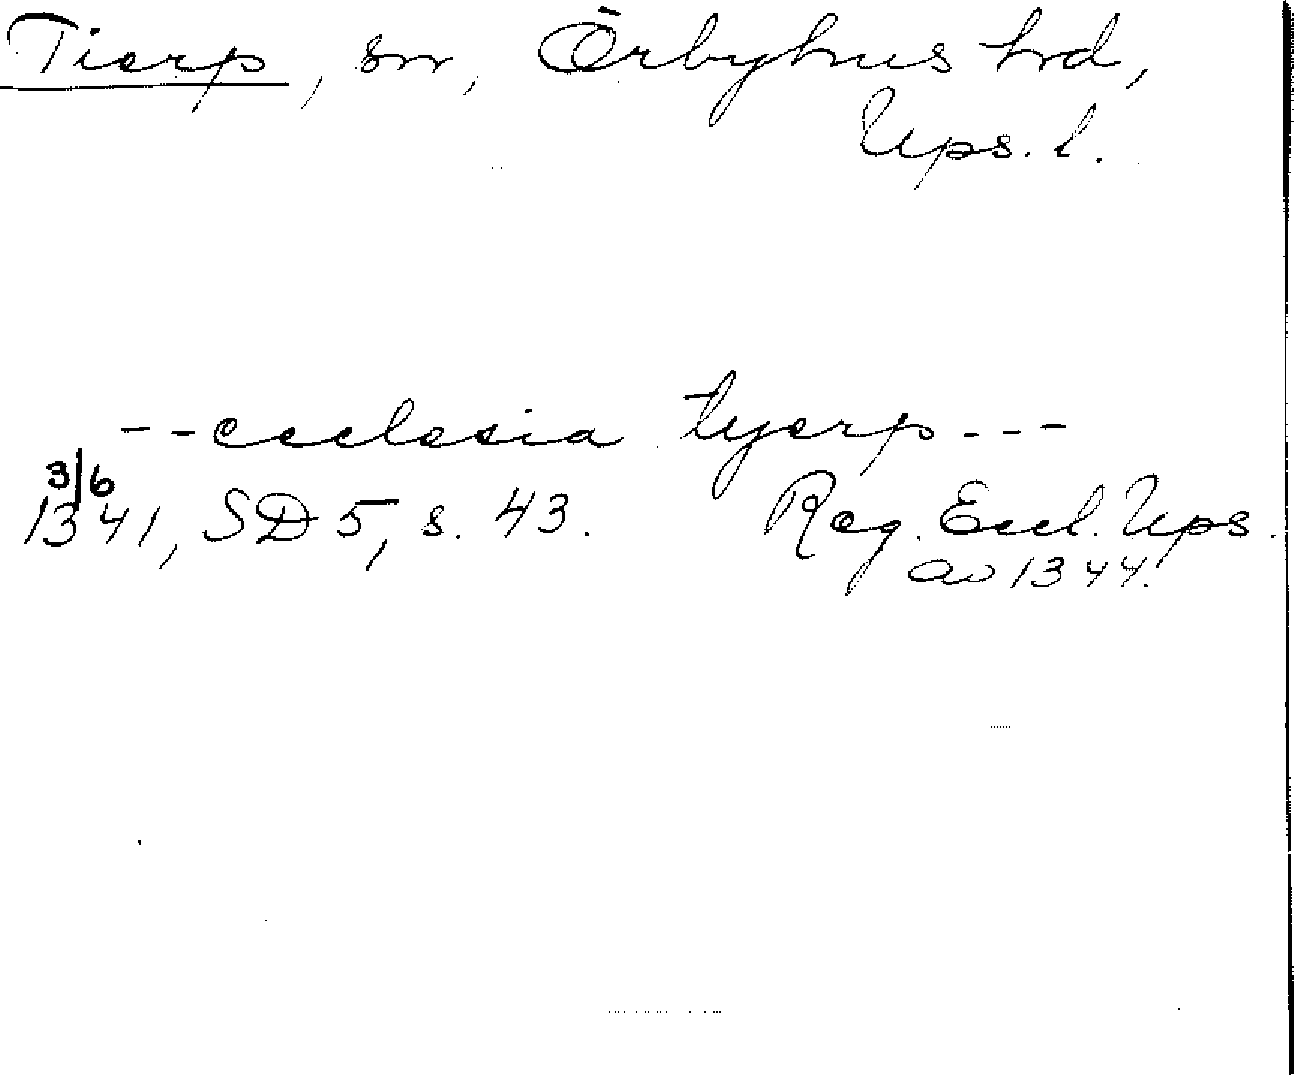 Tierp, sn, Örbyhus hd,
Ups. l.
--ecclesia tyerp---
3/6
1341, SD 5, s. 43. Reg. Eccl. Ups.
av 1344.